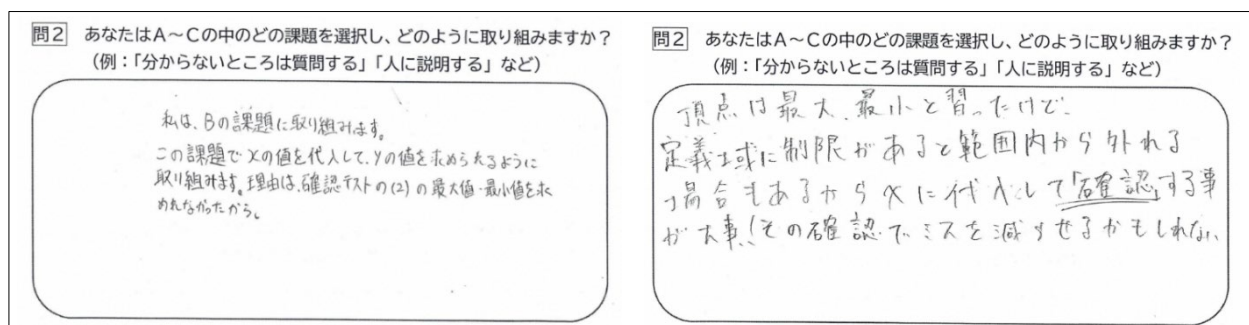 問2 あなたはA～Cの中のどの課題を選択し、どのように取り組みますか？
（例：「分からないところは質問する」「人に説明する」など）
私は、Bの課題に取り組みます。
この課題でxの値を代入して、yの値を求められるように
取り組みます。理由は、確認テストの(2)の最大値・最小値を求
めれなかったから。
問2 あなたはA～Cの中のどの課題を選択し、どのように取り組みますか？
（例：「分からないところは質問する」「人に説明する」など）
頂点は最大、最小と習ったけど、
定義域に制限があると範囲内から外れる
場合もあるからxに代入して「確認」する事
が大事！その確認でミスを減らせるかもしれない